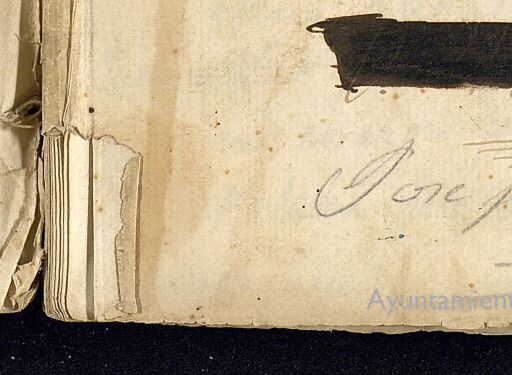 Jose
Ayuntamient